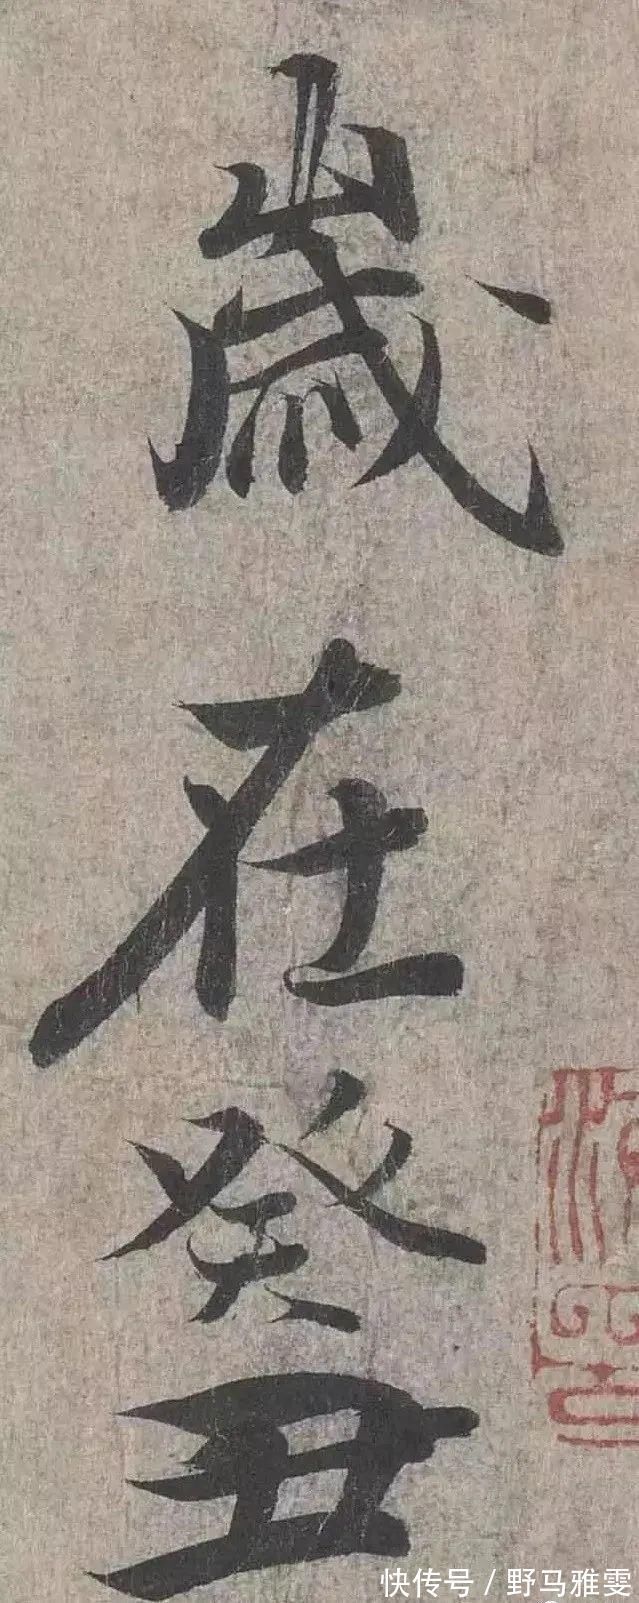 歲在癸丑
快传号/野马雅雯